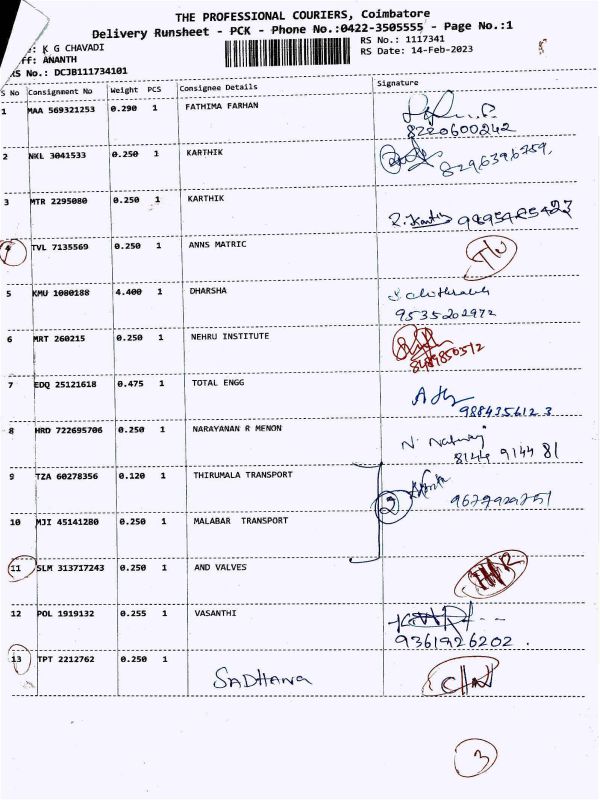 THE PROFESSIONAL COURIERS, Coimbatore
Delivery Runsheet - PCK - Phone No.:0422-3505555 - Page No.:1
: K G CHAVADI
RS No.: 1117341
ff: ANANTH
RS Date: 14-Feb-2023
RS No.: DCJB111734101
S No Consignment No Weight PCS Consignee Details Signature
1 MAA 569321253 0.290 1 FATHIMA FARHAN
8220600242
2 NKL 3041533 0.250 1 KARTHIK
8296396759,
3 MTR 2295080 0.250 1 KARTHIK
4 TVL 7135569 0.250 1 ANNS MATRIC
5 KMU 1080188 4.400 1 DHARSHA
9535202972
6 MRT 260215 0.250 1 NEHRU INSTITUTE
7 EDQ 25121618 0.475 1 TOTAL ENGG
9884356123
8 HRD 722695706 0.250 1 NARAYANAN R MENON
8144 9144 81
9 TZA 60278356 0.120 1 THIRUMALA TRANSPORT
2
10 MJI 45141280 0.250 1 MALABAR TRANSPORT
11 SLM 313717243 0.250 1 AND VALVES
12 POL 1919132 0.255 1 VASANTHI
9361926202.
13 TPT 2212762 0.250 1
SADHANA
3